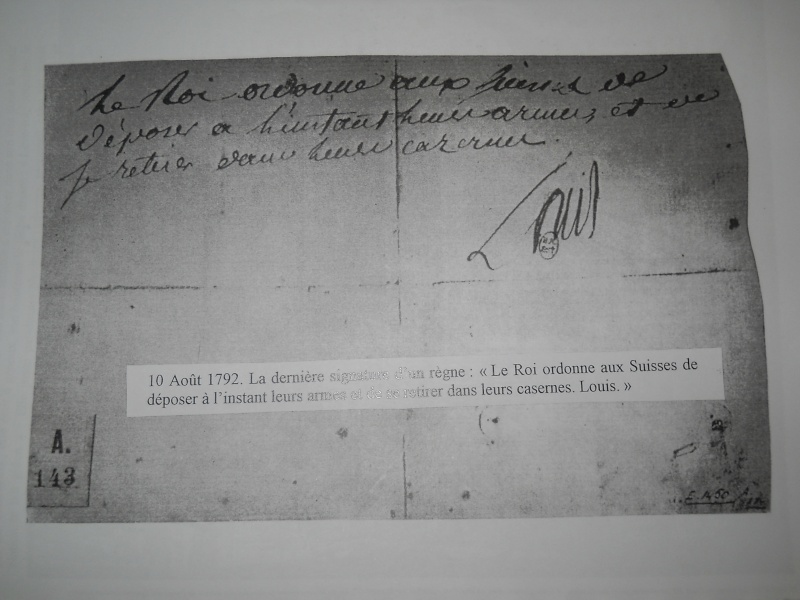 Le Roi ordonne aux Suisses de
déposer a l'instant leurs armes, et de
se retirer dans leurs cazernes.
Louis
10 Août 1792. La dernière signature d'un règne : « Le Roi ordonne aux Suisses de
déposer à l'instant leurs armes et de se retirer dans leurs casernes. Louis. »
A.
143